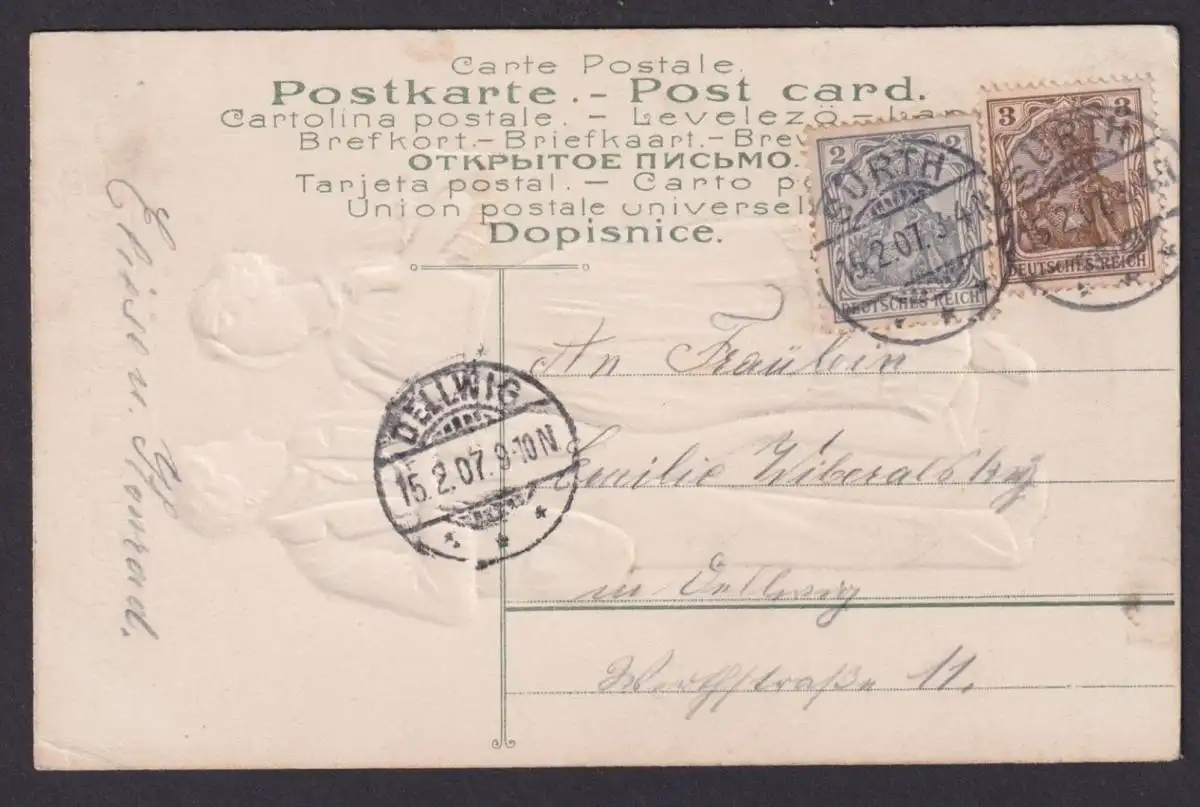 Carte Postale.
Postkarte. - Post card.
Cartolina postale. - Levelezö - La
Brefkort. - Briefkaart. - Brev
ОТКРЫТОЕ ПИСЬМО.
Tarjeta postal. - Carto po
Union postale universel
Dopisnice.
2 2
DEUTSCHES REICH
3 3
DEUTSCHES REICH
SÜRTH
15.2.07.
SÜRTH
DELLWIG
15.2.07. 9-10N
An Fräulein
Emilie
in Dellwig
Werthstraße 11.
Elise u.